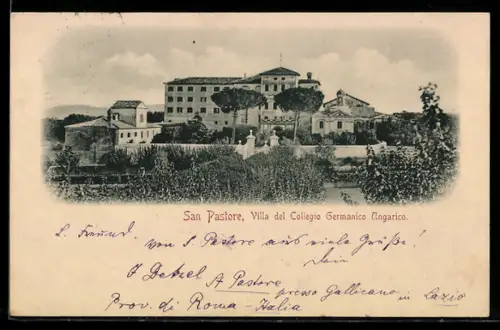 San Pastore, Villa del Collegio Germanico Ungarico.
L. Freund.
von S. Pastore aus viele Grüße!
Dein
A Pastore
presso Gallicano in Lazio
Prov. di Roma - Italia